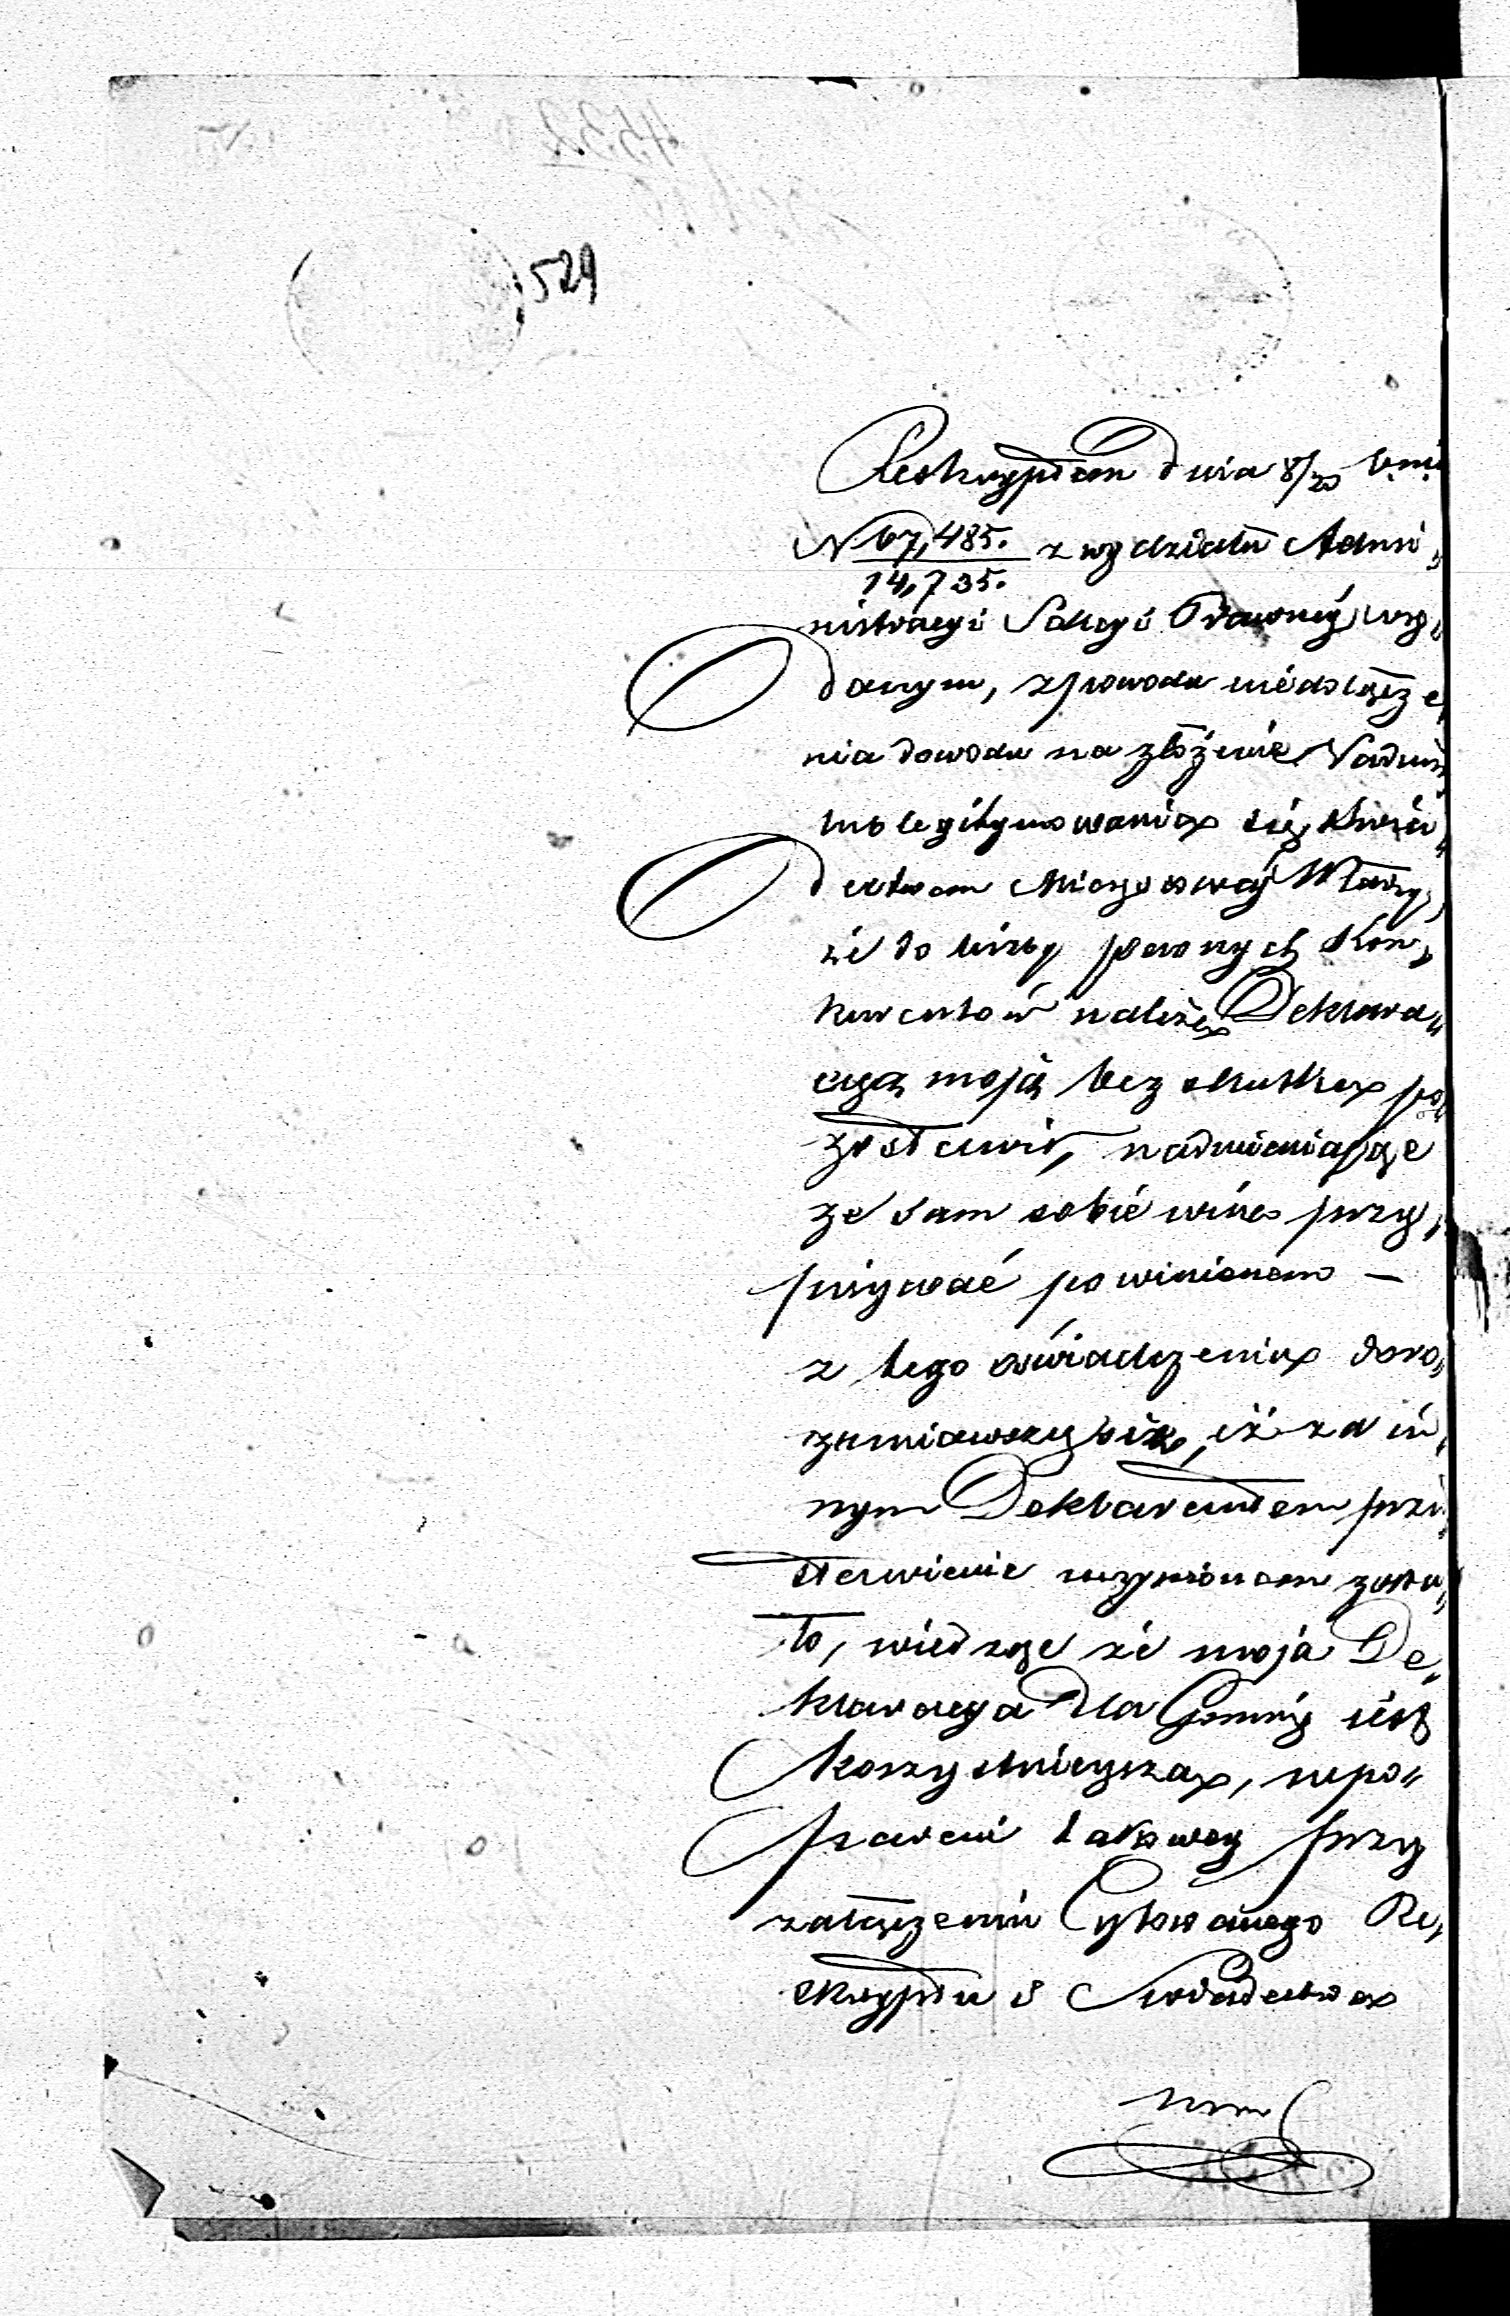 529
Reskryptem dnia 8/20 b. m.
N 67,485. z wydziału Admi„
14,735.
nistracyi Sekcyi Prawnéj wy„
danym, z powodu niedołącze„
nia dowodu na złożenie Vadium
legitymowania się Świa„
dectwem Miejscowéj Władzy,
że do liczby pewnych Kon„
kurentów należę Deklara„
cyą moją bez skutku po„
zostawił, nadmieniając
że sam sobie winę przy„
pisywać powinienem —
z tego oświadczenia doro„
zumiawszy się, iż za in„
nym Deklarantem przed„
stawienie uczynionem zosta„
ło, widzę że moja De„
klaracya dla Gminy jest
korzystnieysza, upo„
przy
załączeniu Cytowanego Re„
skryptu i Świadectwa